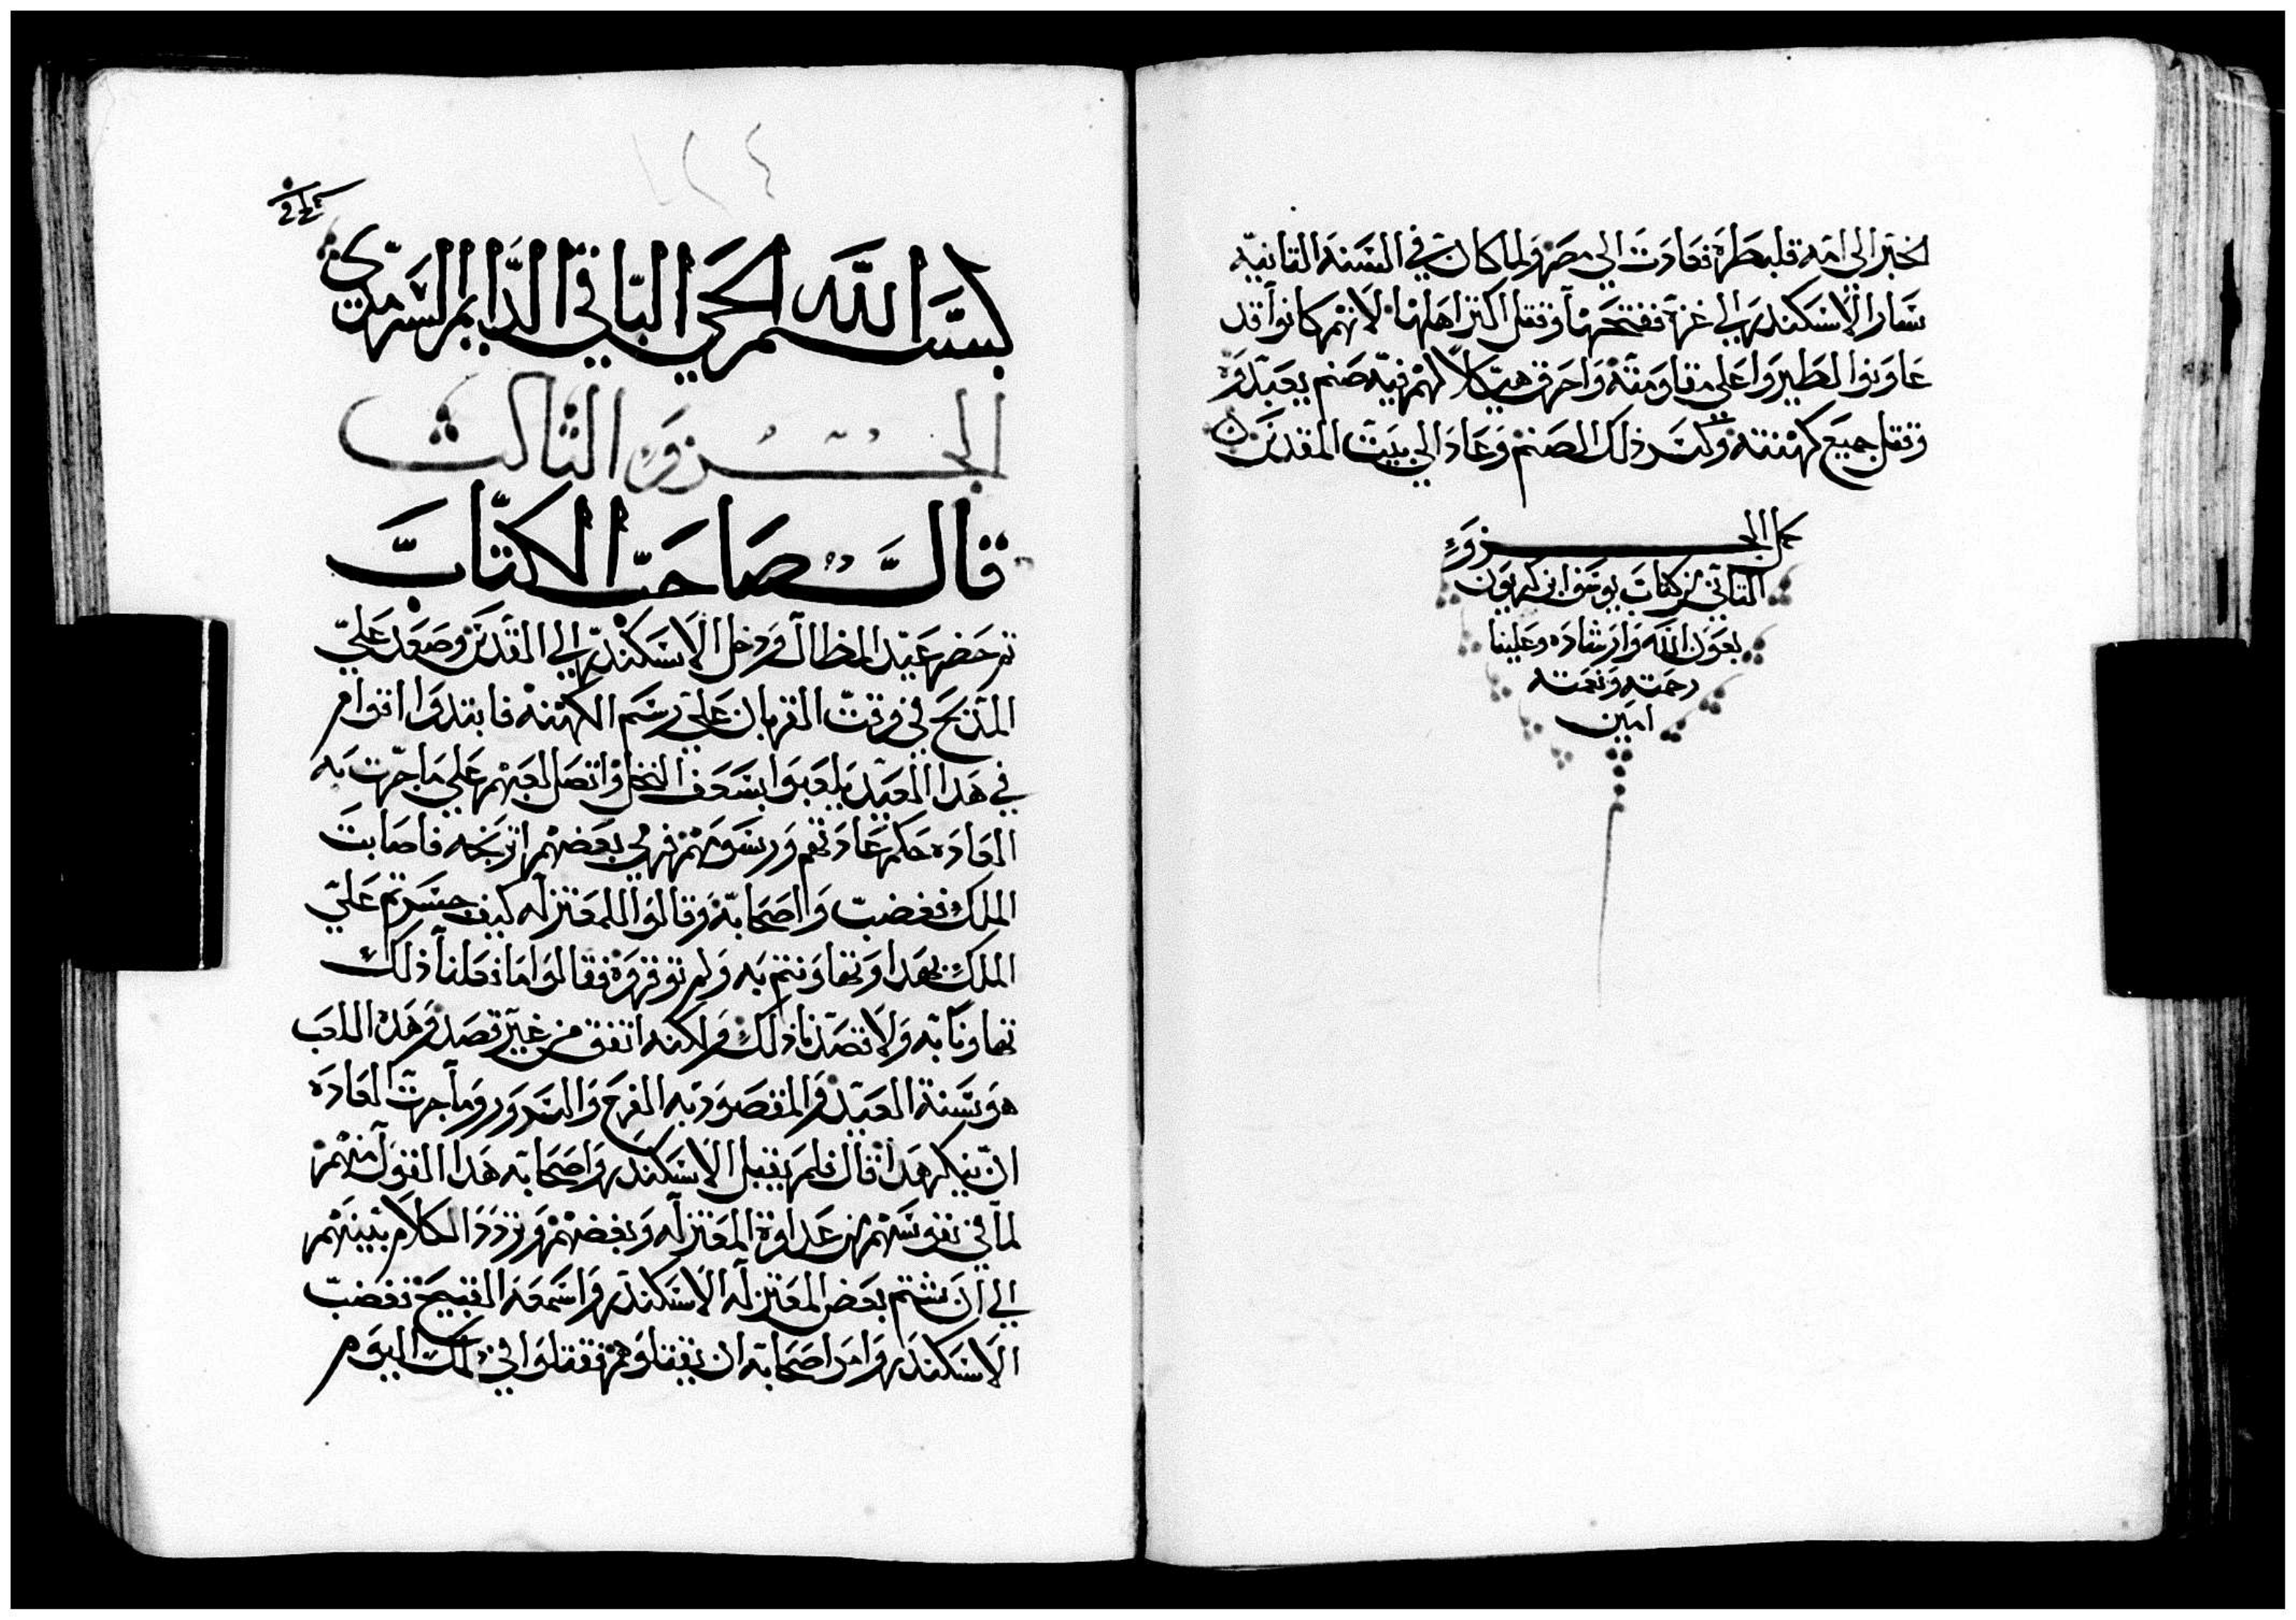 الخبر الى امه قلبطره فعادت الي مصر ولما كان في السنه التانيه
سار الاسكندر الي غزة ففتحها وقتل اكتر اهلها لانهم كانوا قد
عاونوا لطيروا علي مقاومته واحرق هيكلا لهم فيه صنم يعبدوه
وقتل جميع كهنته وكسر ذلك الصنم وعاد الي بيت المقدس
كمل الجزوء
التاني من كتاب يوسف ابن كريون
بعون الله وارشاده وعلينا
رحمته ونعمته
امين
١٢٤
بسم الله الحي الباقي الدايم السرمدي
الجزوء الثالث
قال صاحب الكتاب
تم حضر عيد المظال ودخل الاسكندر الي القدس وصعد علي
المدبح في وقت القربان علي رسم الكهنه فابتدوا اقوام
في هدا العيد يلعبوا بسعف النخل واتصل لعبهم علي ما جرت به
العاده حكم عادتهم ورسومهم فرمي بعضهم اترنجه فاصابت
الملك فغضب واصحابه وقالوا للمعتزله كيف جسرتم علي
الملك بهدا وتهاونتم به ولم توقروه فقالوا ما فعلنا ذلك
تهاونا به ولا قصدنا ذلك ولكنه اتفق من غير قصد وهده اللعب
هو سنة العيد والمقصود به الفرح والسرور وما جرت العاده
ان ينكر هدا قال فلم يقبل الاسكندر واصحابه هدا القول منهم
لما في نفوسهم من عداوة المعتزله وبغضهم وتردد الكلام بينهم
الي ان شتم بعض المعتزله الاسكندر واسمعه القبيح فغضب
الاسكندر وامر اصحابه ان يقتلوهم فقتلوا في تلك اليوم